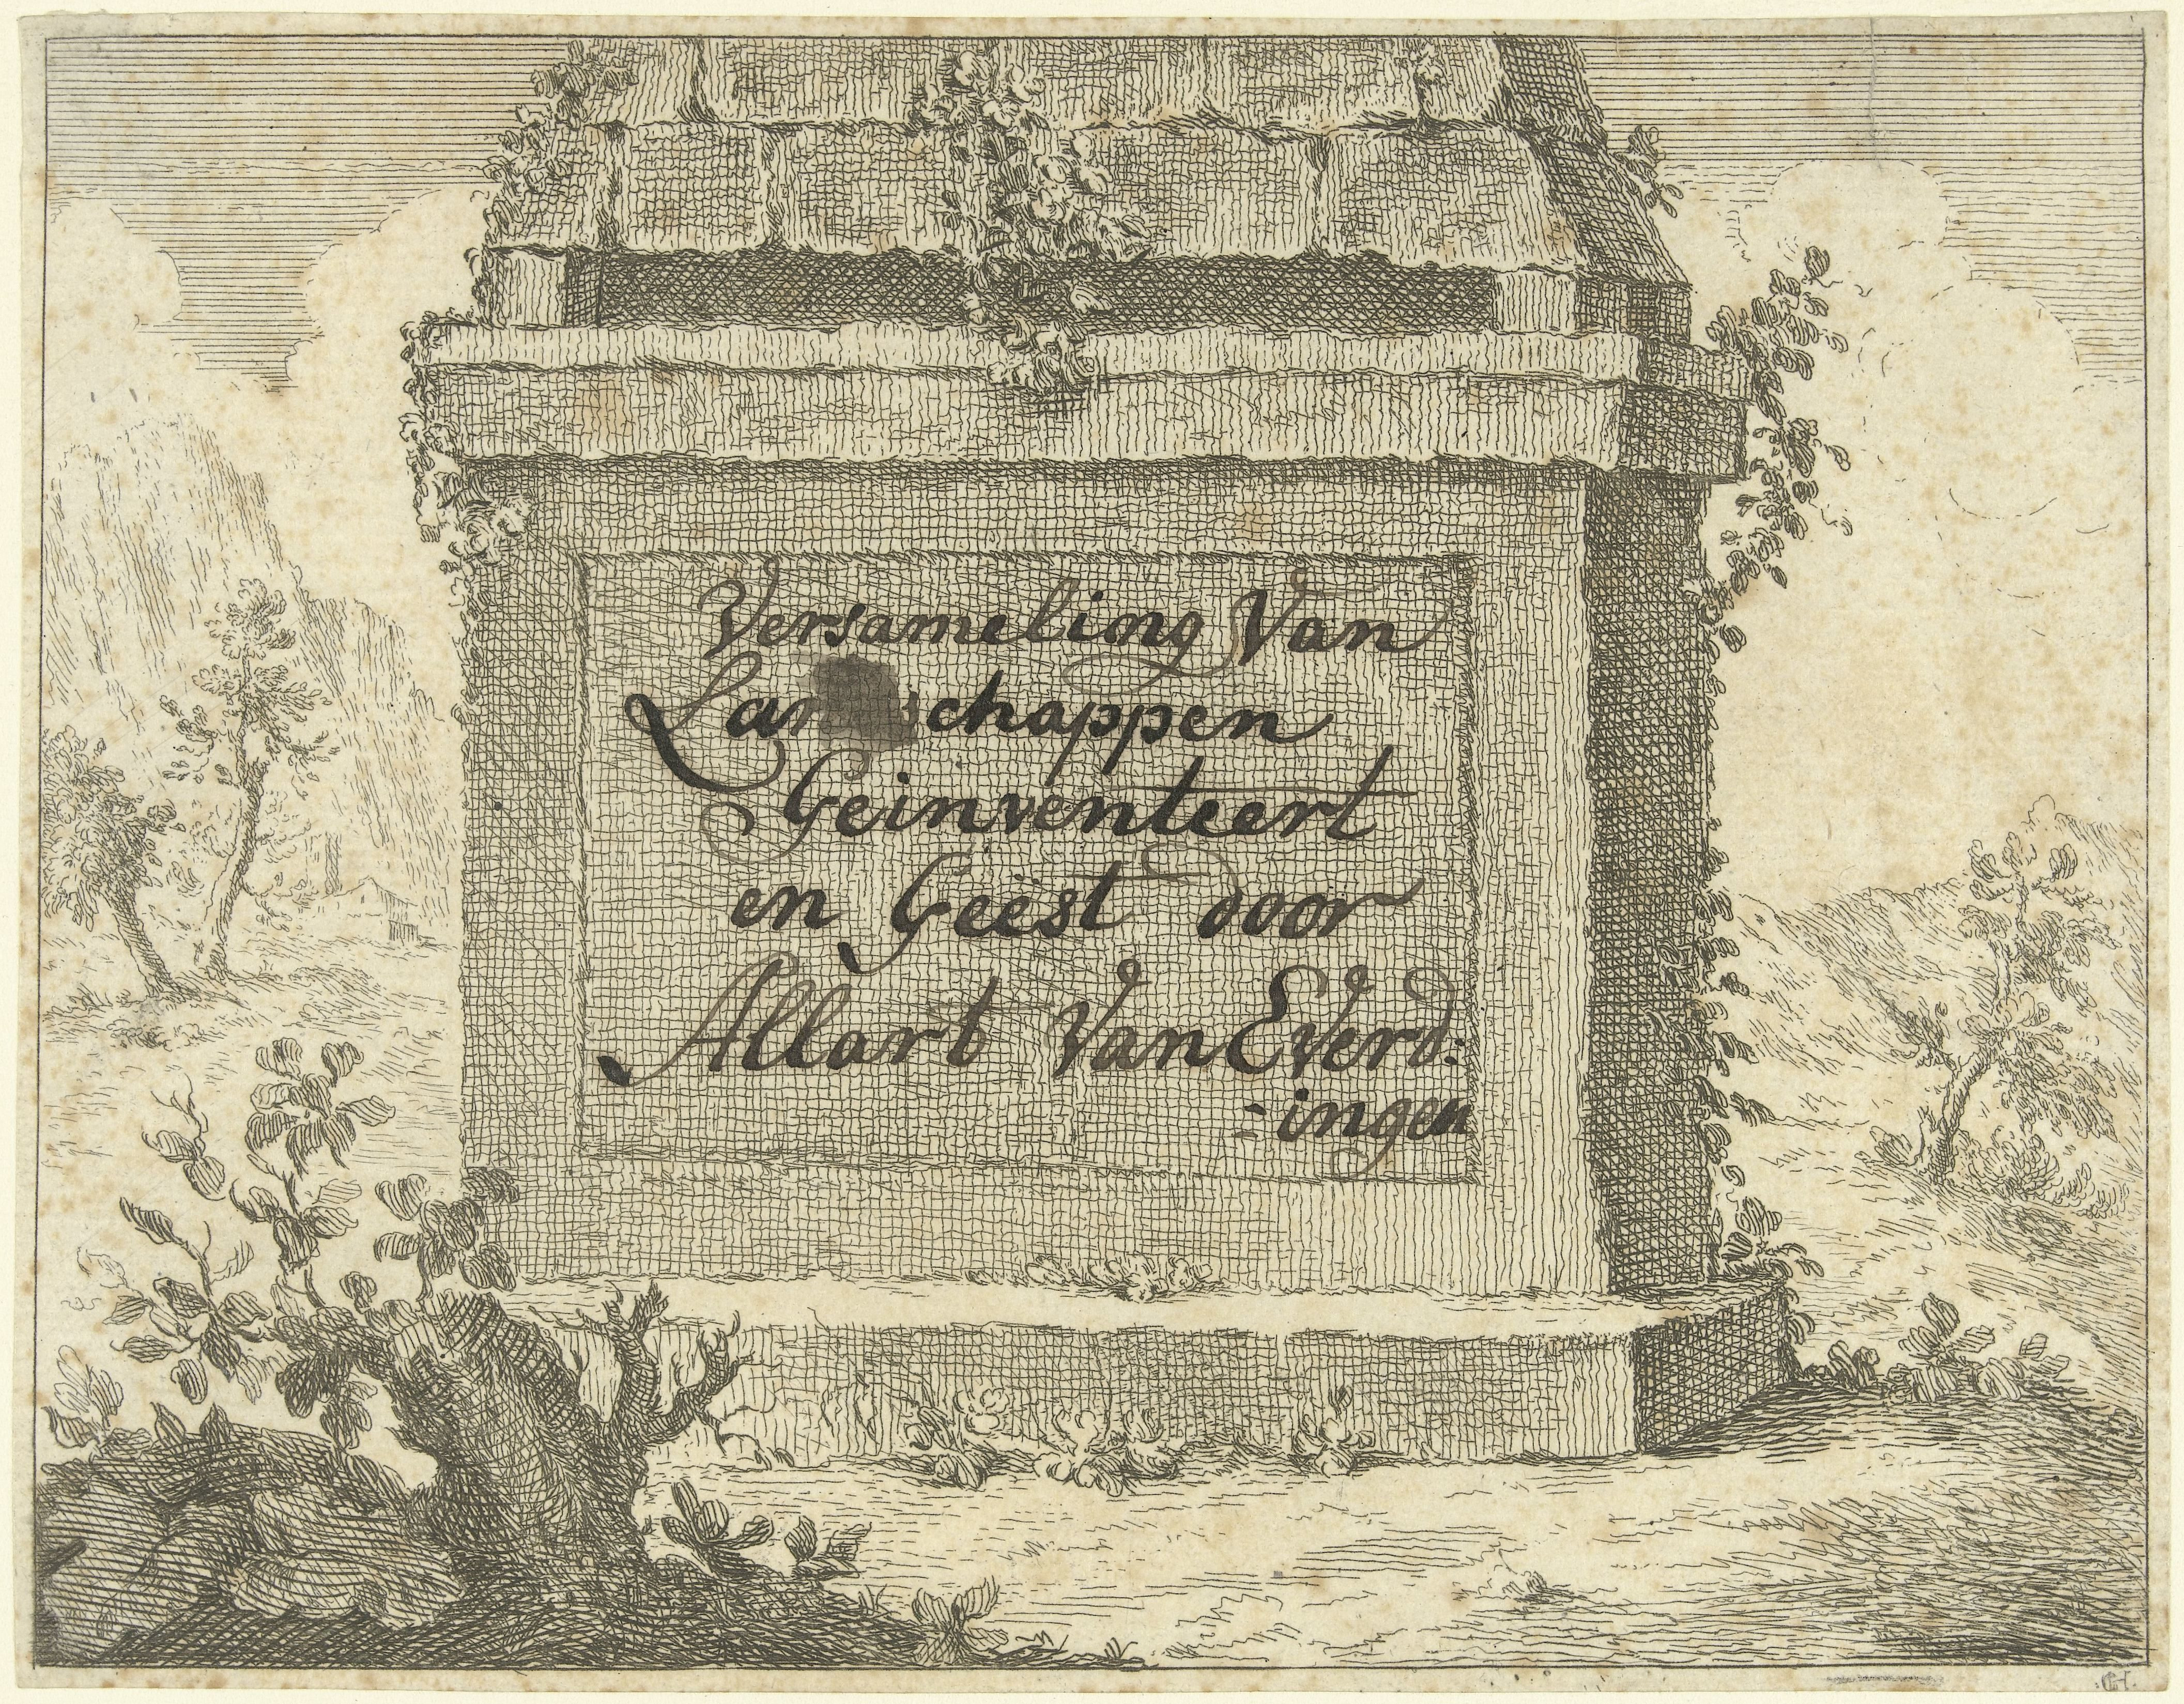 Versameling Van
Geinventeert
en Geëst door
Allart Van Everd:
=ingen